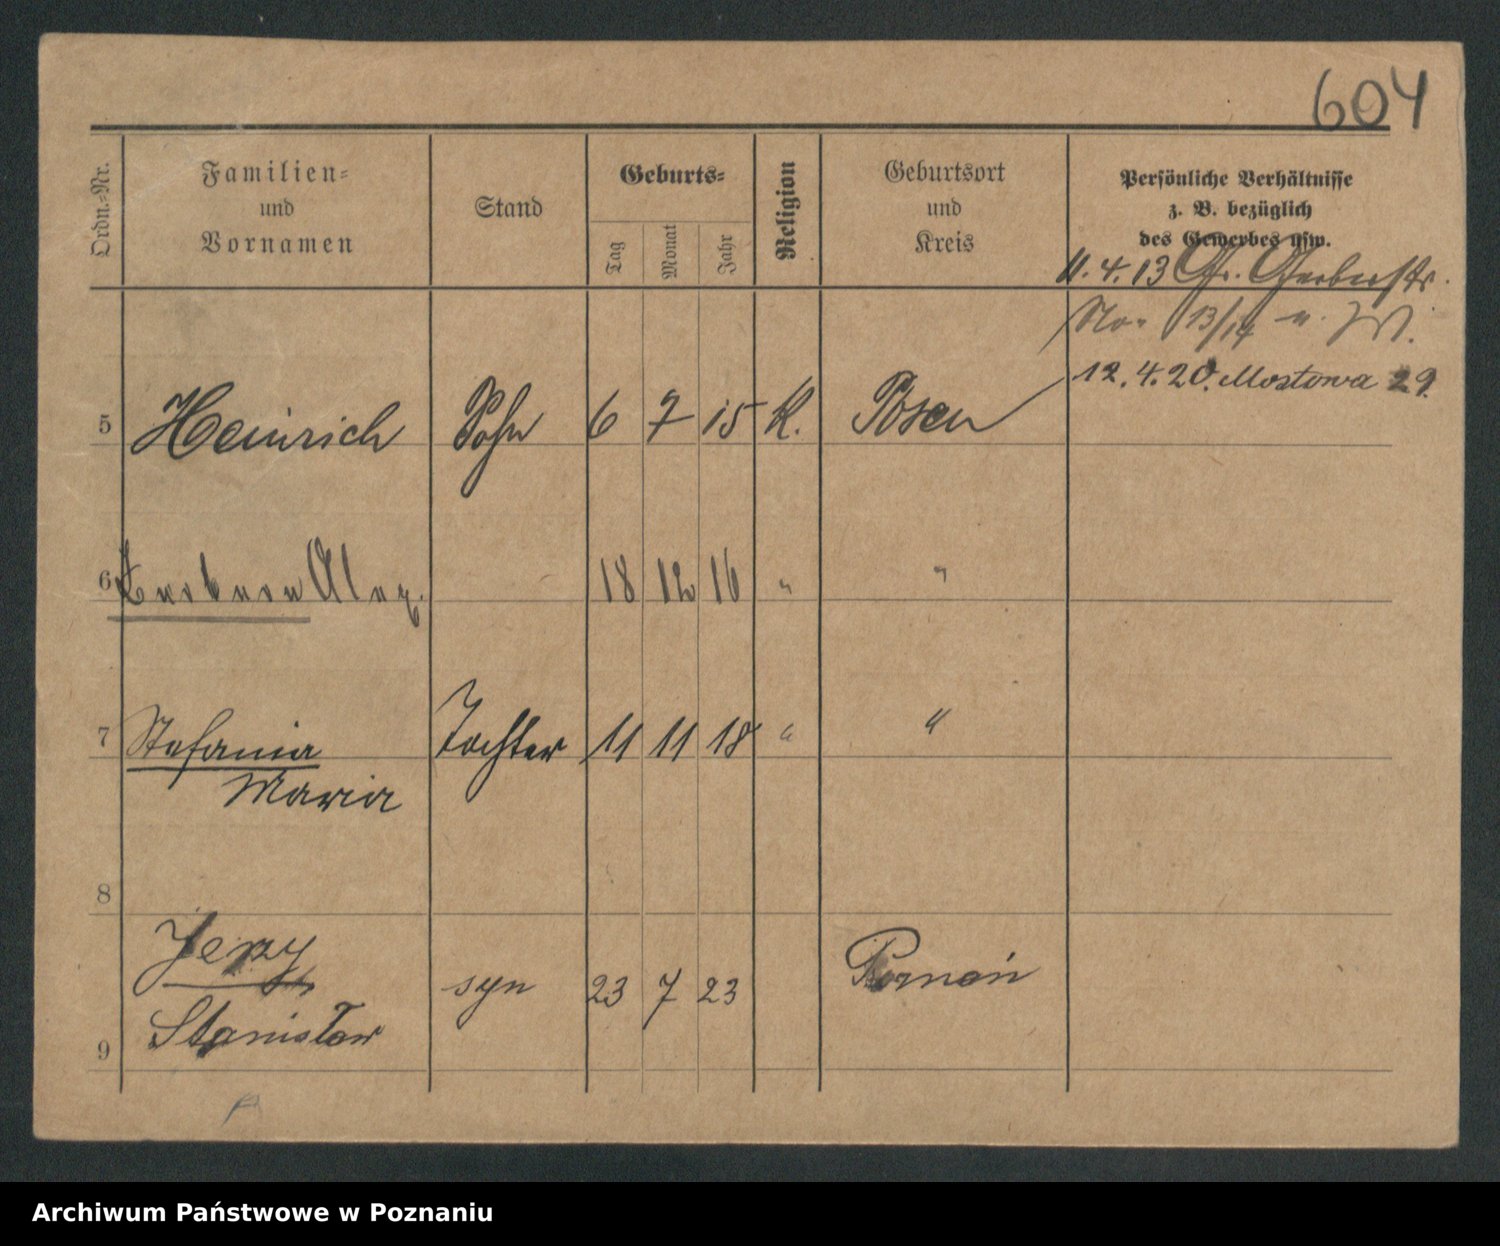 604
Ordn.-Nr.
Familien-
und
Vornamen
Stand
Geburts-
Tag
Monat
Jahr
Religion
Geburtsort
und
Kreis
Persönliche Verhältnisse
z. B. bezüglich
des Gewerbes usw.
11.4.13 Gr. Gerberstr.
No. 13/14
12.4.20. Mostowa 29.
5 Heinrich Sohn 6 7 15 K. Posen
6 Alex. 18 12 16 " "
7 Stefania Tochter 11 11 18 " "
Maria
8
Jerzy
syn 23 7 23 Poznań
Stanisław
9
Archiwum Państwowe w Poznaniu